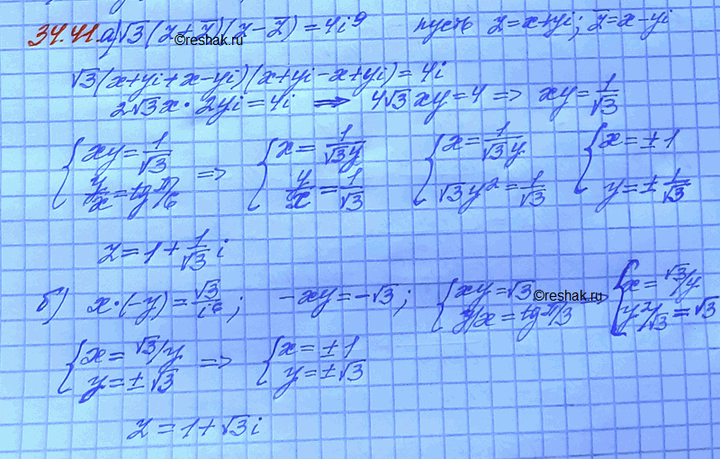 34.41.a) √3(z+z̄)(z-z̄)=4i⁹ пусть z=x+yi; z̄=x-yi
©reshak.ru
√3(x+yi+x-yi)(x+yi-x+yi)=4i
2√3x·2yi=4i => 4√3xy=4 => xy=1/√3
{xy=1/√3; y/x=tg π/6 => {x=1/√3y; y/x=1/√3 {x=1/√3y; √3y²=1/√3 {x=±1; y=±1/√3
z=1+1/√3 i
б) x·(-y)=√3/i⁶; -xy=-√3; {xy=√3; y/x=tg π/3 => {x=√3/y; y²/√3=√3
©reshak.ru
{x=√3/y; y=±√3 => {x=±1; y=±√3
z=1+√3i